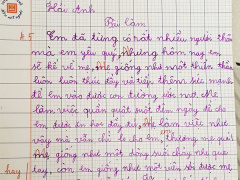 Hải Anh
Bài làm
Em đã từng có rất nhiều người thân
mà em yêu quý, nhưng hôm nay em
sẽ kể về mẹ, mẹ giống như một thiên thần
luôn luôn thúc đẩy và tiếp thêm sức mạnh
để em vào được con đường ước mơ. Mẹ
làm việc quần quật suốt đêm ngày để cho
em được ăn học đầy đủ, mẹ làm việc như
vậy mà vẫn chỉ cho em, thương mẹ quá!
Mẹ giống như một dòng suối chảy nhẹ qua
tay, còn em giống như một viên sỏi được mẹ
hay